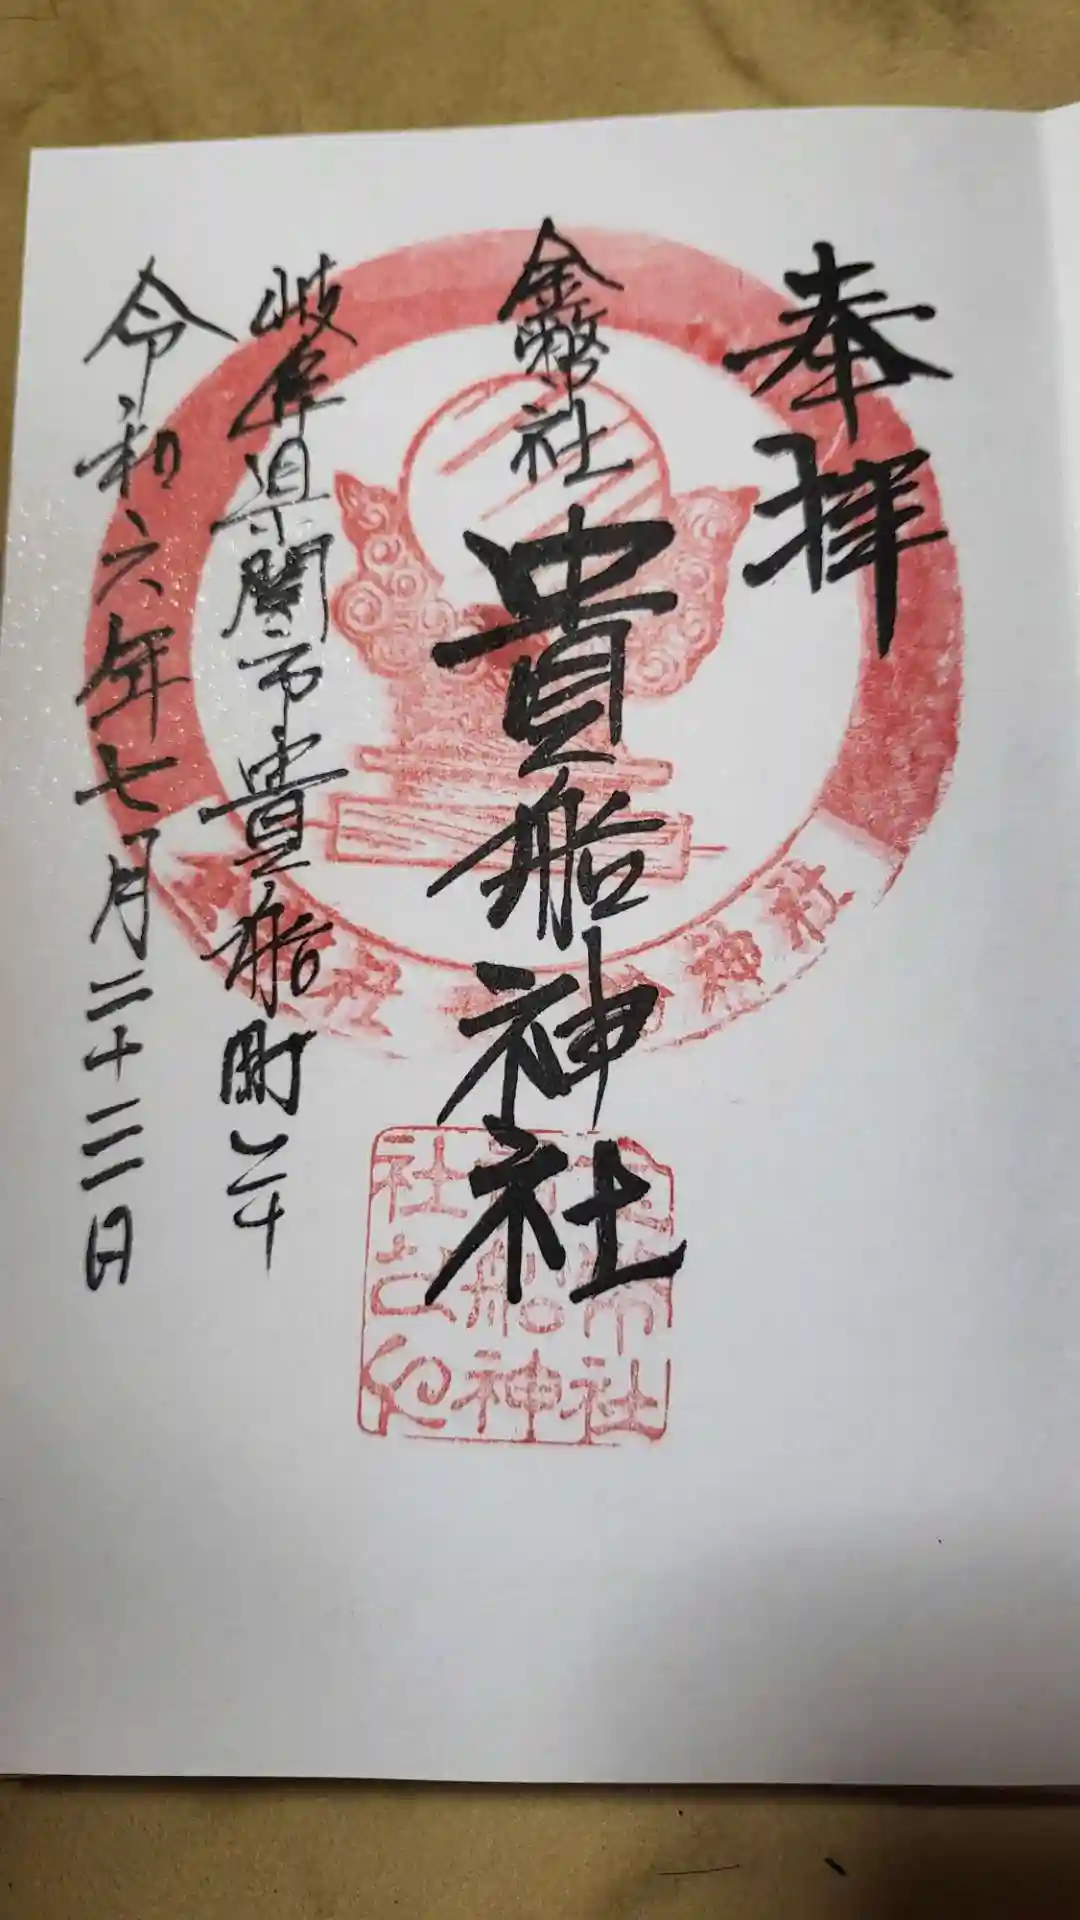 奉拝
金幣社
貴船神社
岐阜県関市貴船町
令和六年七月二十二日
神社
社
船神
社